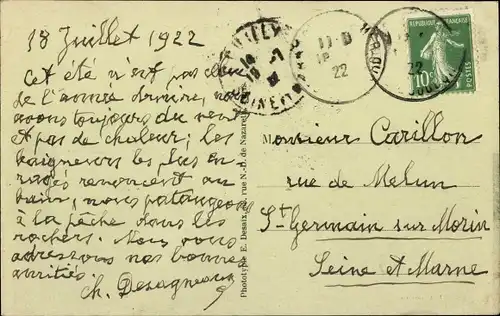 18 Juillet 1922
Cet été n'est pas celui
de l'année dernière, nous
avons toujours du vent
et pas de chaleur; les
baigneurs les plus en-
ragés renoncent au
bain, nous pataugeons
à la pêche dans les
rochers. Nous vous
adressons nos bonnes
amitiés.
Ch. Desagneaux
Phototypie E. Desaix, rue N.-D. de Nazareth
REPUBLIQUE FRANÇAISE
10c
POSTES
22
22
Monsieur Carillon
rue de Melun
St Germain sur Morin
Seine et Marne